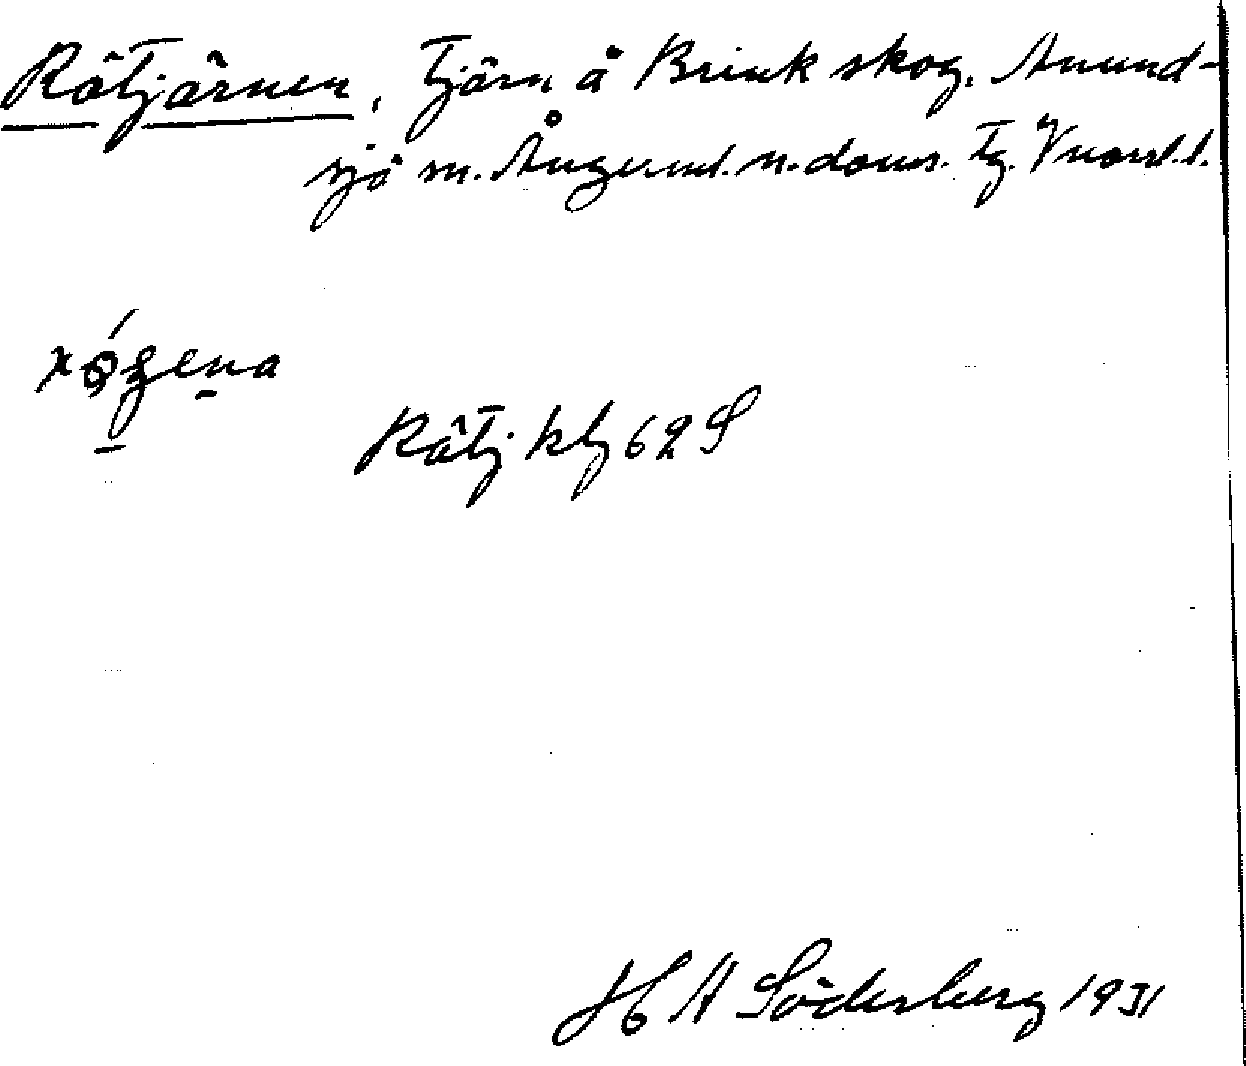 Råtjärnen, Tjärn å Brink skog, Anund-
sjö sn. Ångerml. n. doms. Tg. Vnorrl. l.
Råtj. ktj 62 S
H A Söderberg 1931